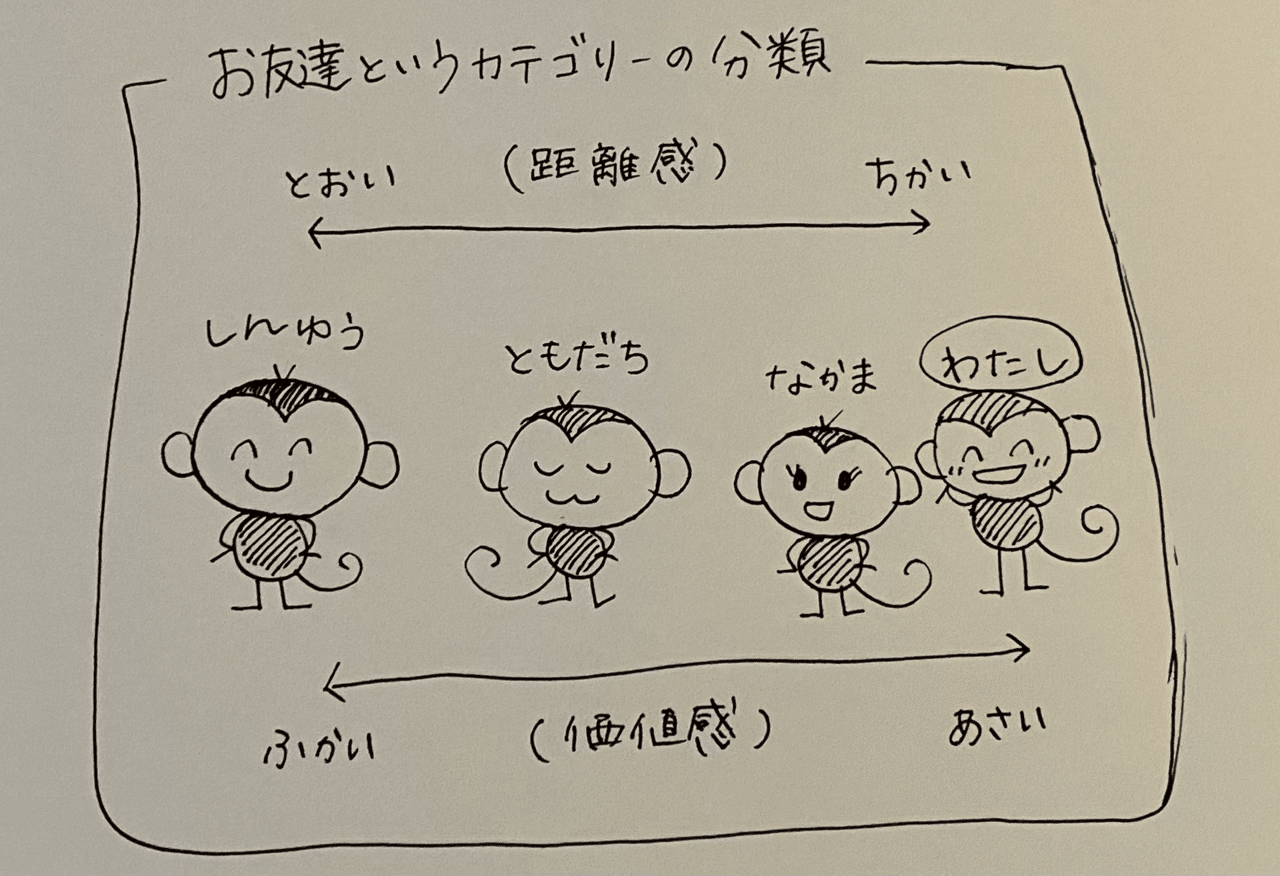 お友達というカテゴリーの分類
とおい (距離感) ちかい
しんゆう
ともだち
なかま
わたし
ふかい (価値感) あさい